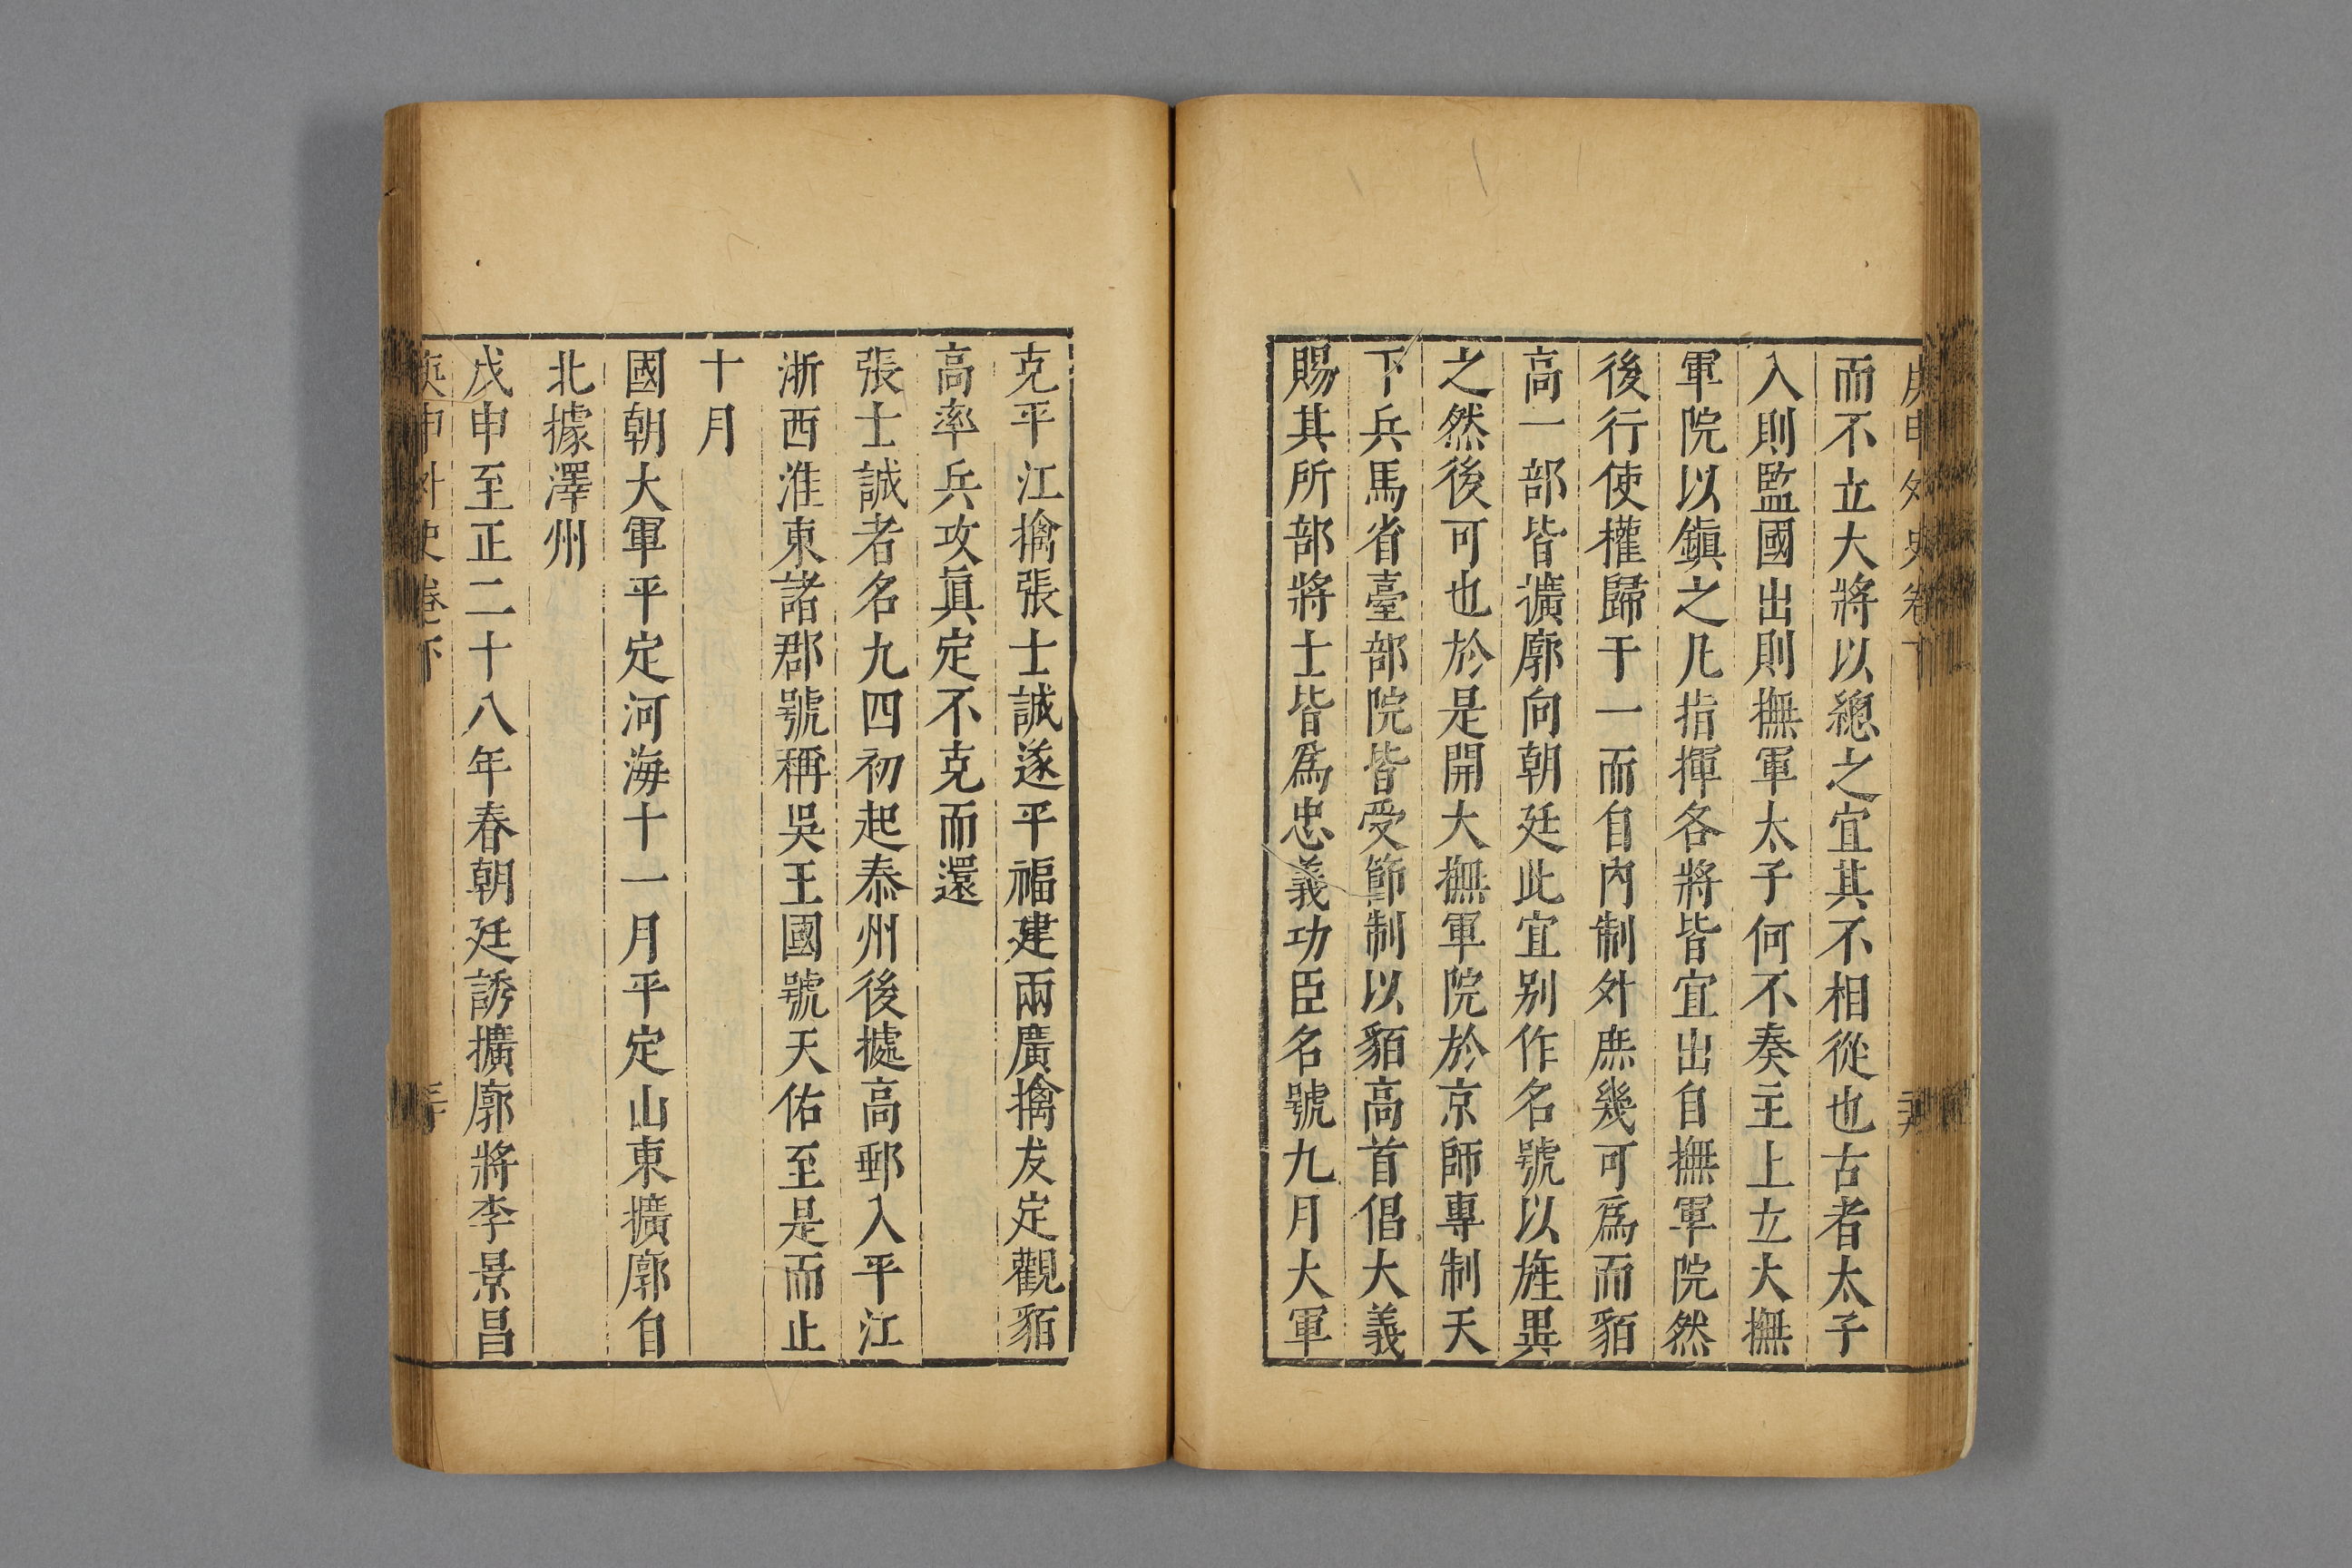 庚申外史卷下
而不立大將以總之宜其不相從也古者太子
入則監國出則撫軍太子何不奏主上立大撫
軍院以鎮之凡指揮各將皆宜出自撫軍院然
後行使權歸于一而自內制外庶幾可爲而貊
高一部皆擴廓向朝廷此宜別作名號以旌異
之然後可也於是開大撫軍院於京師專制天
下兵馬省臺部院皆受節制以貊高首倡大義
賜其所部將士皆爲忠義功臣名號九月大軍
克平江擒張士誠遂平福建兩廣擒友定觀貊
高率兵攻眞定不克而還
張士誠者名九四初起泰州後據高郵入平江
浙西淮東諸郡號稱吳王國號天佑至是而止
十月
國朝大軍平定河海十一月平定山東擴廓自
北據澤州
戊申至正二十八年春朝廷誘擴廓將李景昌
庚申外史卷下 三十